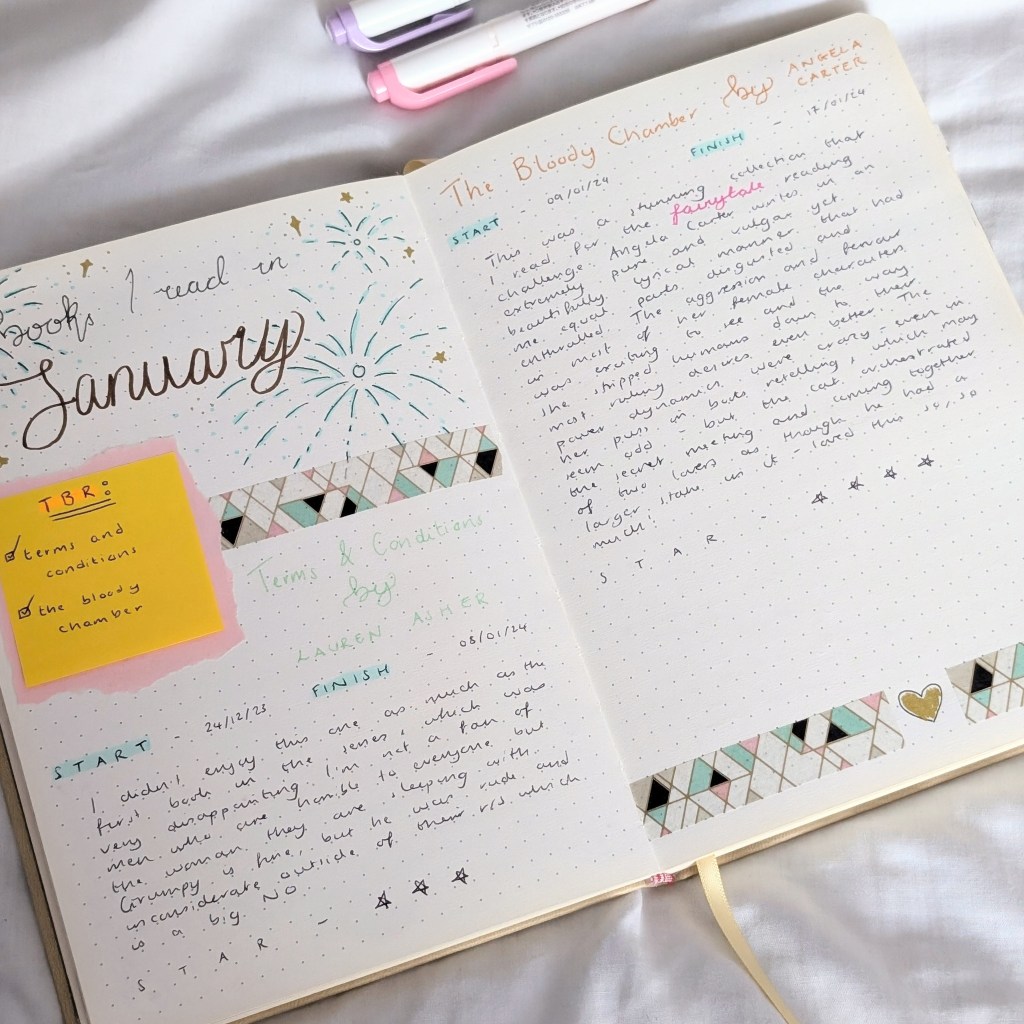 books I read in
January
TBR:
terms and
conditions
the bloody
chamber
Terms & Conditions
by
LAUREN ASHER
START - 24/12/23 FINISH - 08/01/24
I didn't enjoy this one as much as the
first book in the series, which was
very disappointing. I'm not a fan of
men who are horrible to everyone but
the woman they are sleeping with.
Grumpy is fine, but he was rude and
inconsiderate outside of their r/s which
is a big NO
STAR - ☆☆☆
The Bloody Chamber by ANGELA
CARTER
START - 09/01/24 FINISH - 17/01/24
This was a stunning collection that
I read for the fairytale reading
challenge. Angela Carter writes in an
extremely pure and vulgar yet
beautifully lyrical manner that had
me equal parts disgusted and
enthralled. The aggression and fervour
in most of her female characters
was exciting to see and the way
she stripped humans down to their
most ruling desires even better. The
power dynamics were crazy - even in
her puss in boots retelling, which may
seem odd - but the cat orchestrated
the secret meeting and coming together
of two lovers as though he had a
larger stake in it - loved this so, so
much!
STAR ☆☆☆☆